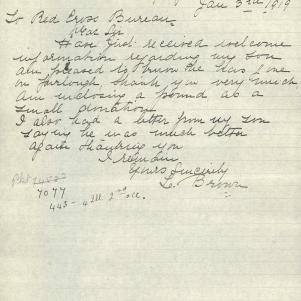 Jan 3rd 1919
To Red Cross Bureau
Dear Sir
Have Just received welcome
information regarding my son
am pleased to know he has gone
on furlough thank you very much
am enclosing a pound as a
small donation
I also had a letter from my son
saying he was much better
again thanking you
I remain
Yours Sincerely
L. Brown
7077